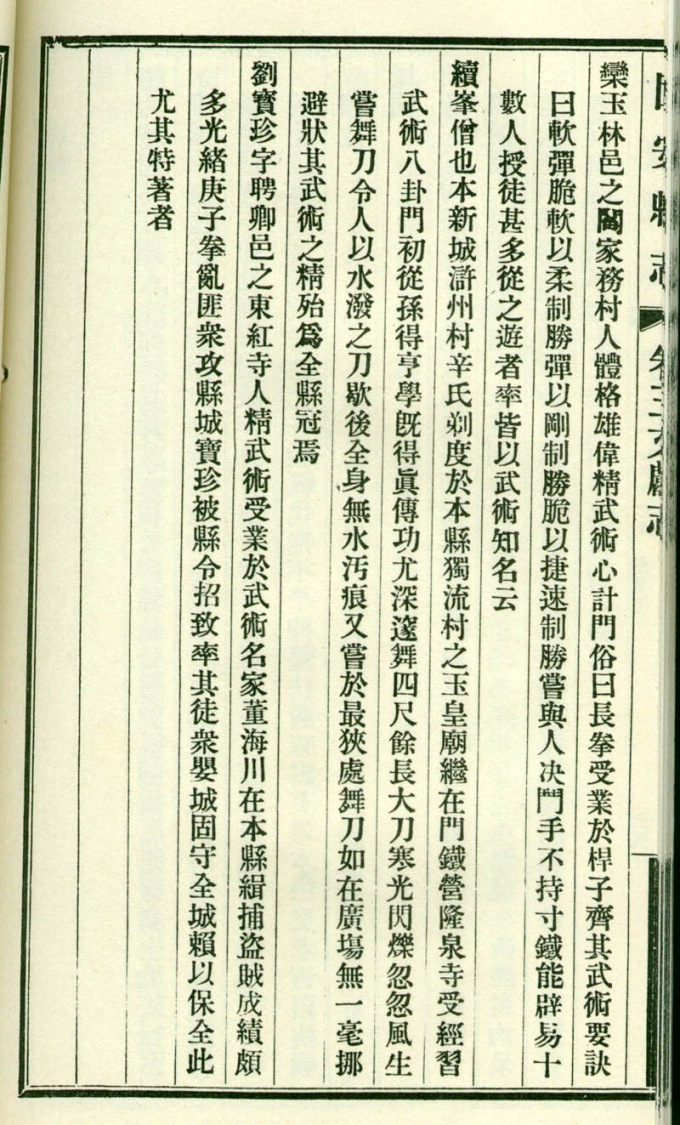 固安縣志 卷三 文獻志
欒玉林邑之閻家務村人體格雄偉精武術心計門俗曰長拳受業於桿子齊其武術要訣
曰軟彈脆軟以柔制勝彈以剛制勝脆以捷速制勝嘗與人决鬥手不持寸鐵能辟易十
數人授徒甚多從之遊者率皆以武術知名云
續峯僧也本新城滸州村辛氏剃度於本縣獨流村之玉皇廟繼在門鐵營隆泉寺受經習
武術八卦門初從孫得亨學旣得眞傳功尤深邃舞四尺餘長大刀寒光閃爍忽忽風生
嘗舞刀令人以水潑之刀歇後全身無水汚痕又嘗於最狹處舞刀如在廣塲無一毫挪
避狀其武術之精殆爲全縣冠焉
劉寶珍字聘卿邑之東紅寺人精武術受業於武術名家董海川在本縣緝捕盜賊成績頗
多光緒庚子拳亂匪衆攻縣城寶珍被縣令招致率其徒衆嬰城固守全城賴以保全此
尤其特著者